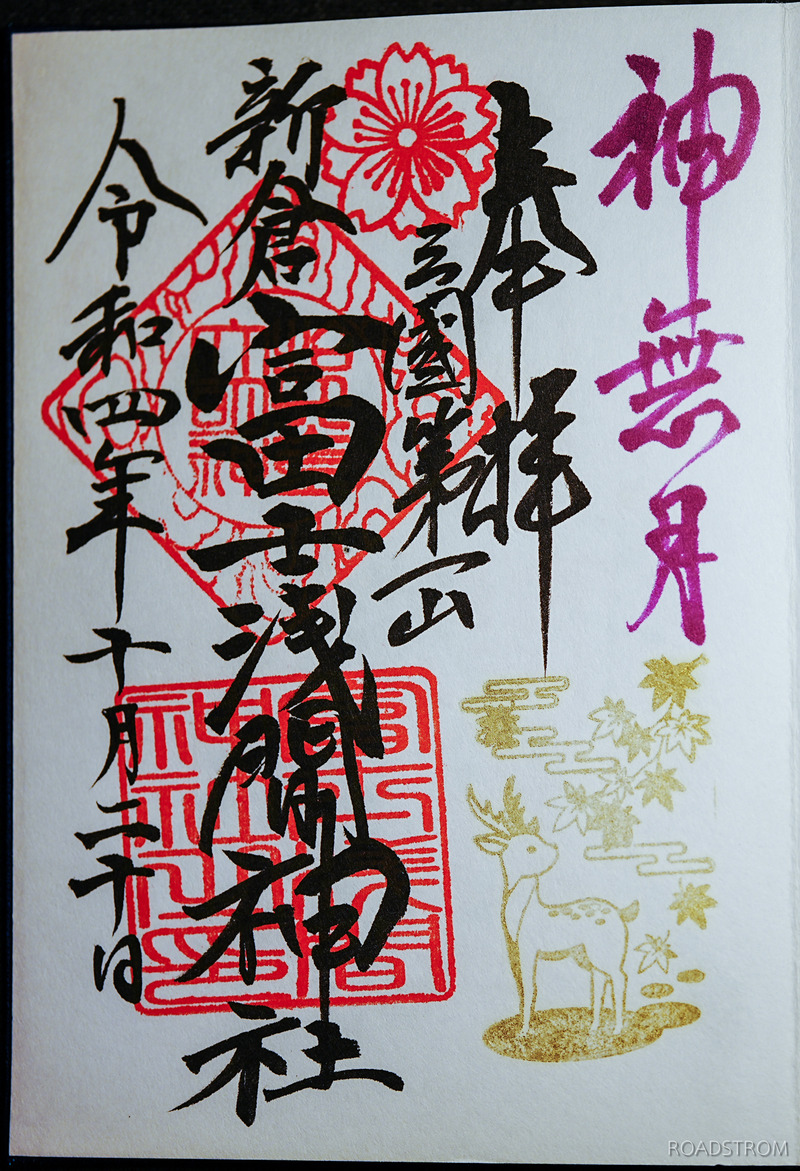 神無月
奉拝
三國第一山
新倉富士浅間神社
令和四年十月二十日
ROADSTROM